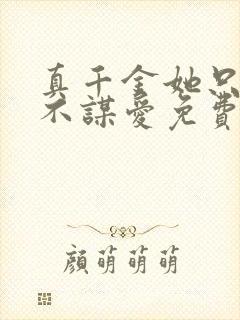 真千金她只
不謀愛免費
顔萌萌萌